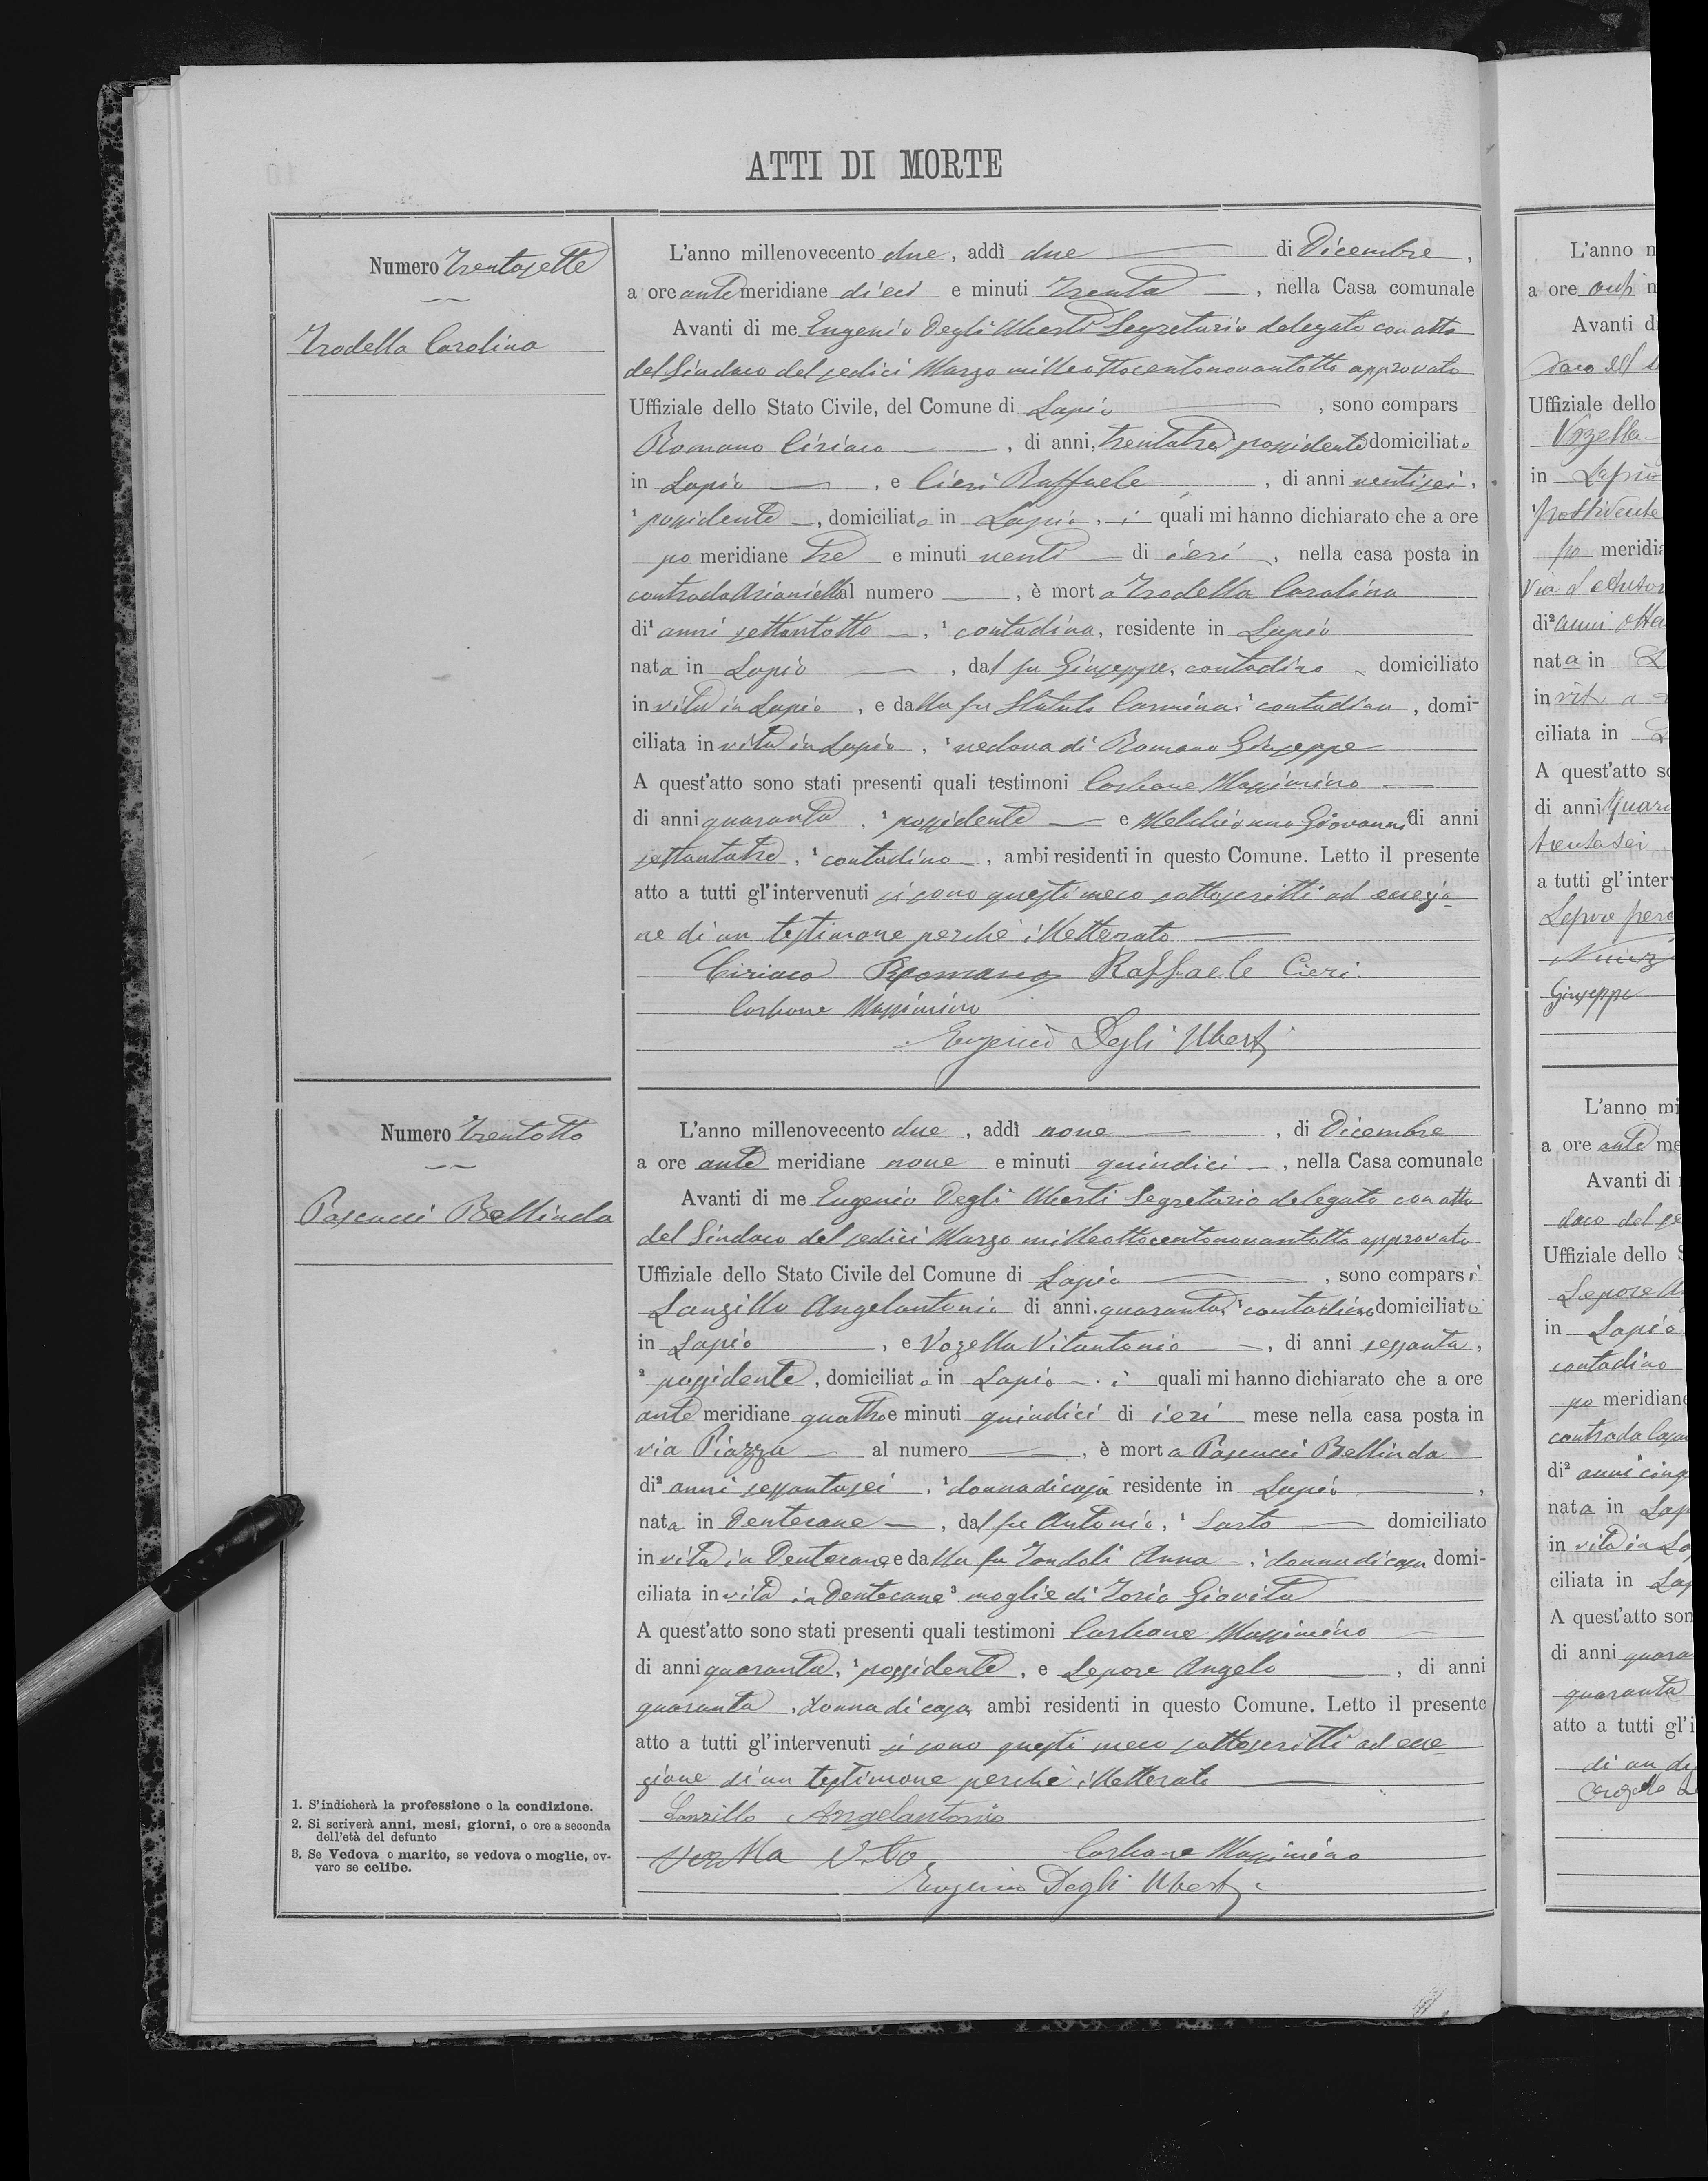 ATTI DI MORTE
Numero Trentasette
Trodella Carolina
L'anno millenovecento due, addì due di Dicembre,
a ore antemeridiane dieci e minuti trenta, nella Casa comunale
Avanti di me Eugenio Degli Uberti Segretario delegato con atto
del Sindaco del sedici Marzo milleottocentonovantotto approvato
Uffiziale dello Stato Civile, del Comune di Lapio, sono compars
Romano Ciriaco, di anni, trentatre, 1 possidente domiciliato
in Lapio, e Cieri Raffaele, di anni ventisei,
1 possidente, domiciliato in Lapio, i quali mi hanno dichiarato che a ore
po meridiane tre e minuti venti di ieri, nella casa posta in
contrada Arianiello al numero, è morta Trodella Carolina
di 1 anni settantotto, 1 contadina, residente in Lapio
nata in Lapio, dal fu Giuseppe, contadino domiciliato
in vita in Lapio, e dalla fu Statuto Carmina, 1 contadina, domi-
ciliata in vita in Lapio, 1 vedova di Romano Giuseppe
A quest'atto sono stati presenti quali testimoni Carbone Massimino
di anni quaranta, 1 possidente e Melchionna Giovanni di anni
settantatre, 1 contadino, ambi residenti in questo Comune. Letto il presente
atto a tutti gl'intervenuti si sono questi meco sottoscritti ad eccezio-
ne di un testimone perchè illetterato
Ciriaco Romano Raffaele Cieri.
Carbone Massimino
Eugenio Degli Uberti
Numero Trentotto
Pascucci Bellinda
L'anno millenovecento due, addì nove, di Dicembre
a ore ante meridiane nove e minuti quindici, nella Casa comunale
Avanti di me Eugenio Degli Uberti Segretario delegato con atto
del Sindaco del sedici Marzo milleottocentonovantotto approvato
Uffiziale dello Stato Civile del Comune di Lapio, sono comparsi
Lanzillo Angelantonio di anni quaranta, 1 contadino domiciliato
in Lapio, e Vozella Vitantonio, di anni sessanta,
2 possidente, domiciliato in Lapio. i quali mi hanno dichiarato che a ore
ante meridiane quattro e minuti quindici di ieri mese nella casa posta in
via Piazza al numero, è morta Pascucci Bellinda
di 2 anni sessantasei, 1 donna di casa residente in Lapio,
nata in Dentecane, dal fu Antonio, 1 Sarto domiciliato
in vita in Dentecane e dalla fu Zondoli Anna, 1 donna di casa domi-
ciliata in vita in Dentecane 3 moglie di Iorio Giovita
A quest'atto sono stati presenti quali testimoni Carbone Massimino
di anni quaranta, 1 possidente, e Lepore Angelo, di anni
quaranta, donna di casa, ambi residenti in questo Comune. Letto il presente
atto a tutti gl'intervenuti si sono questi meco sottoscritti ad ecce-
zione di un testimone perchè illetterato
Lanzillo Angelantonio
Vozella Vito Carbone Massimino
Eugenio Degli Uberti
1. S'indicherà la professione o la condizione.
2. Si scriverà anni, mesi, giorni, o ore a seconda
dell'età del defunto
3. Se Vedova o marito, se vedova o moglie, ov-
vero se celibe.
L'anno m
a ore m
Avanti di
Uffiziale dello
Vozella
in Lapio
1 possidente
po meridia
di 2 anni otta
nata in L
in vita
ciliata in L
A quest'atto so
di anni quara
trentasei
a tutti gl'inter
Lepore perc
Giuseppe
L'anno mi
a ore ante me
Avanti di
daco del se
Uffiziale dello S
Lepore A
in Lapio
contadino
po meridiane
contrada
di 2 anni cinq
nata in Lap
in vita in La
ciliata in Lap
A quest'atto son
di anni quara
quaranta
atto a tutti gl'i
di un
Angelo Le